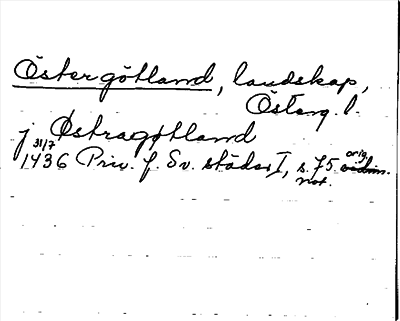 Östergötland, landskap,
Österg. l.
j Østragøtland
31/7 1436 Priv. f. Sv. städer I, s. 75 orig.
not.